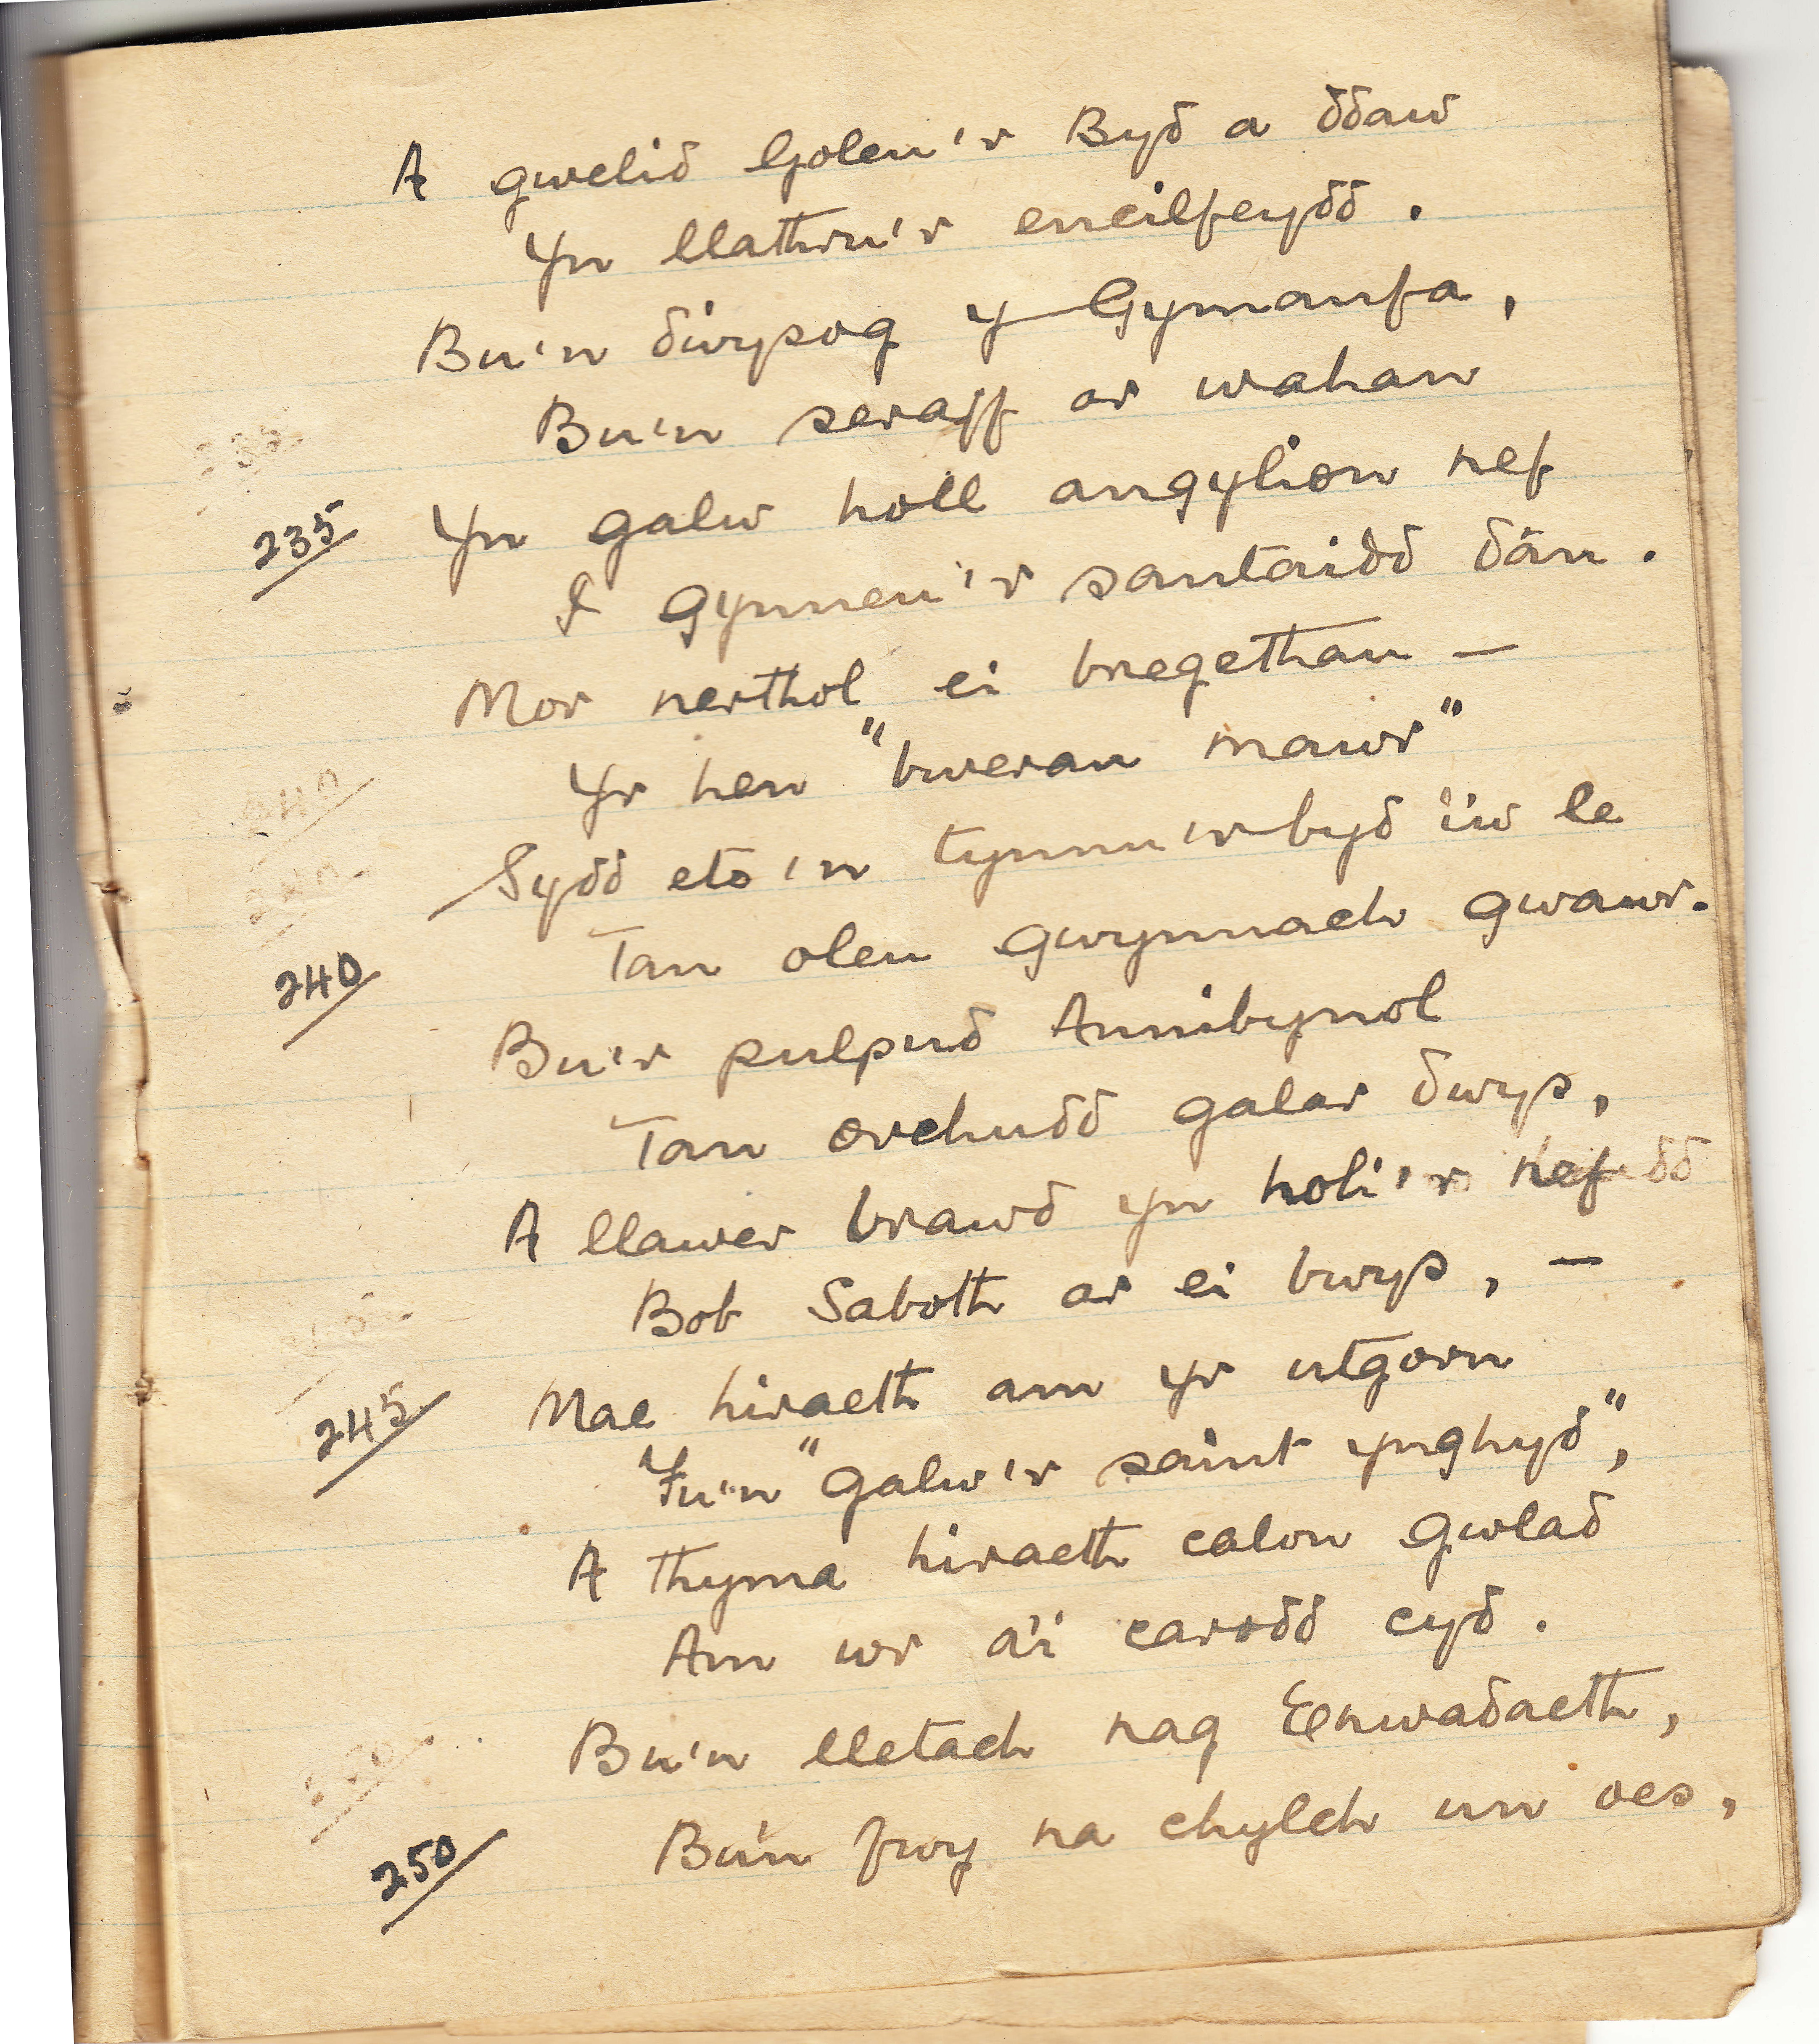 A gwelid Goleu'r Byd a ddaw
Yn llathru'r encilfeydd.
Bu'n dwysog y Gymanfa,
Bu'n seraff ar wahan
235 Yn galw holl angylion nef
I gynneu'r santaidd dân.
Mor nerthol ei bregethau —
Yr hen "bwerau mawr"
Sydd eto'n tynnu'r byd i'w le
Tan oleu gwynnach gwawr.
240
Bu'r pulpud Annibynol
Tan orchudd galar dwys,
A llawer brawd yn holi'r nef
Bob Saboth ar ei bwys, —
245 Mae hiraeth am yr utgorn
Fu'n "galw'r saint ynghyd",
A thyma hiraeth calon gwlad
Am wr a'i carodd cyd.
Bu'n lletach nag Enwadaeth,
250 Bu'n fwy na chylch un oes,